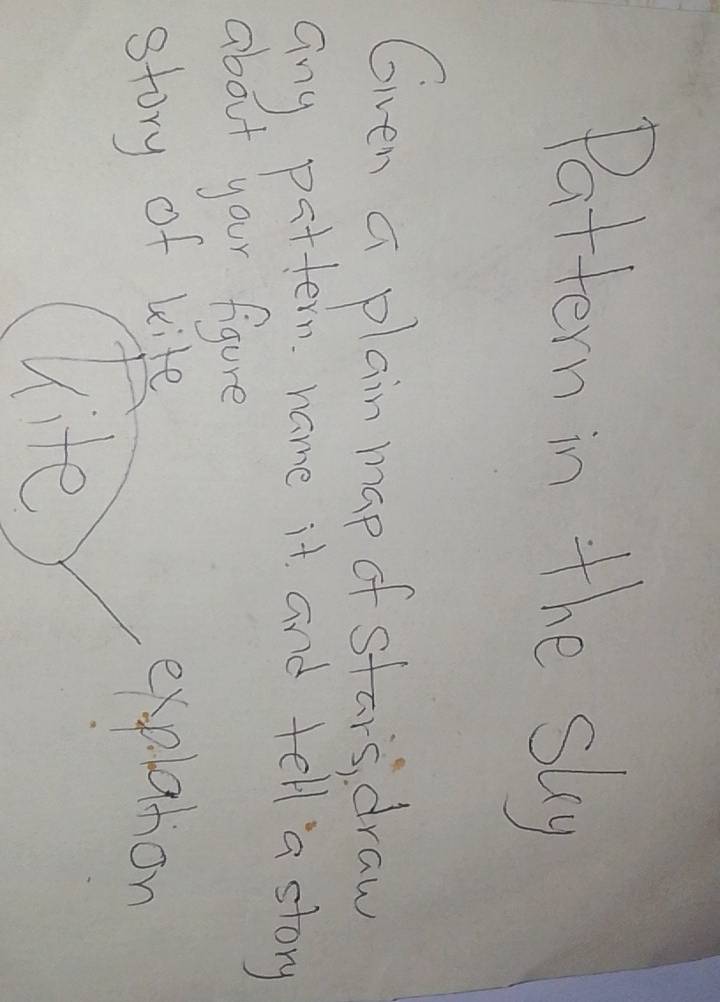 Pattern in the Sky
Given a plain map of stars, draw
any pattern. name it. and tell a story
about your figure
story of kite
kite
explation